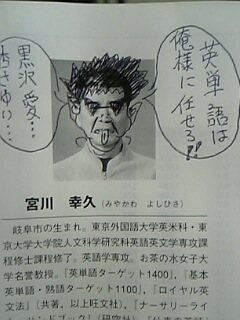 英単語は
俺様に任せろ!!
黒沢愛…
宮川 幸久(みやかわ よしひさ)
岐阜市の生まれ。東京外国語大学英米科・東
京大学大学院人文科学研究科英語英文学専攻課
程修士課程修了。英語学専攻。お茶の水女子大
学名誉教授。『英単語ターゲット1400』、『基本
英単語・熟語ターゲット1100』、『ロイヤル英
文法』(共著、以上旺文社)、『ナーサリーライ